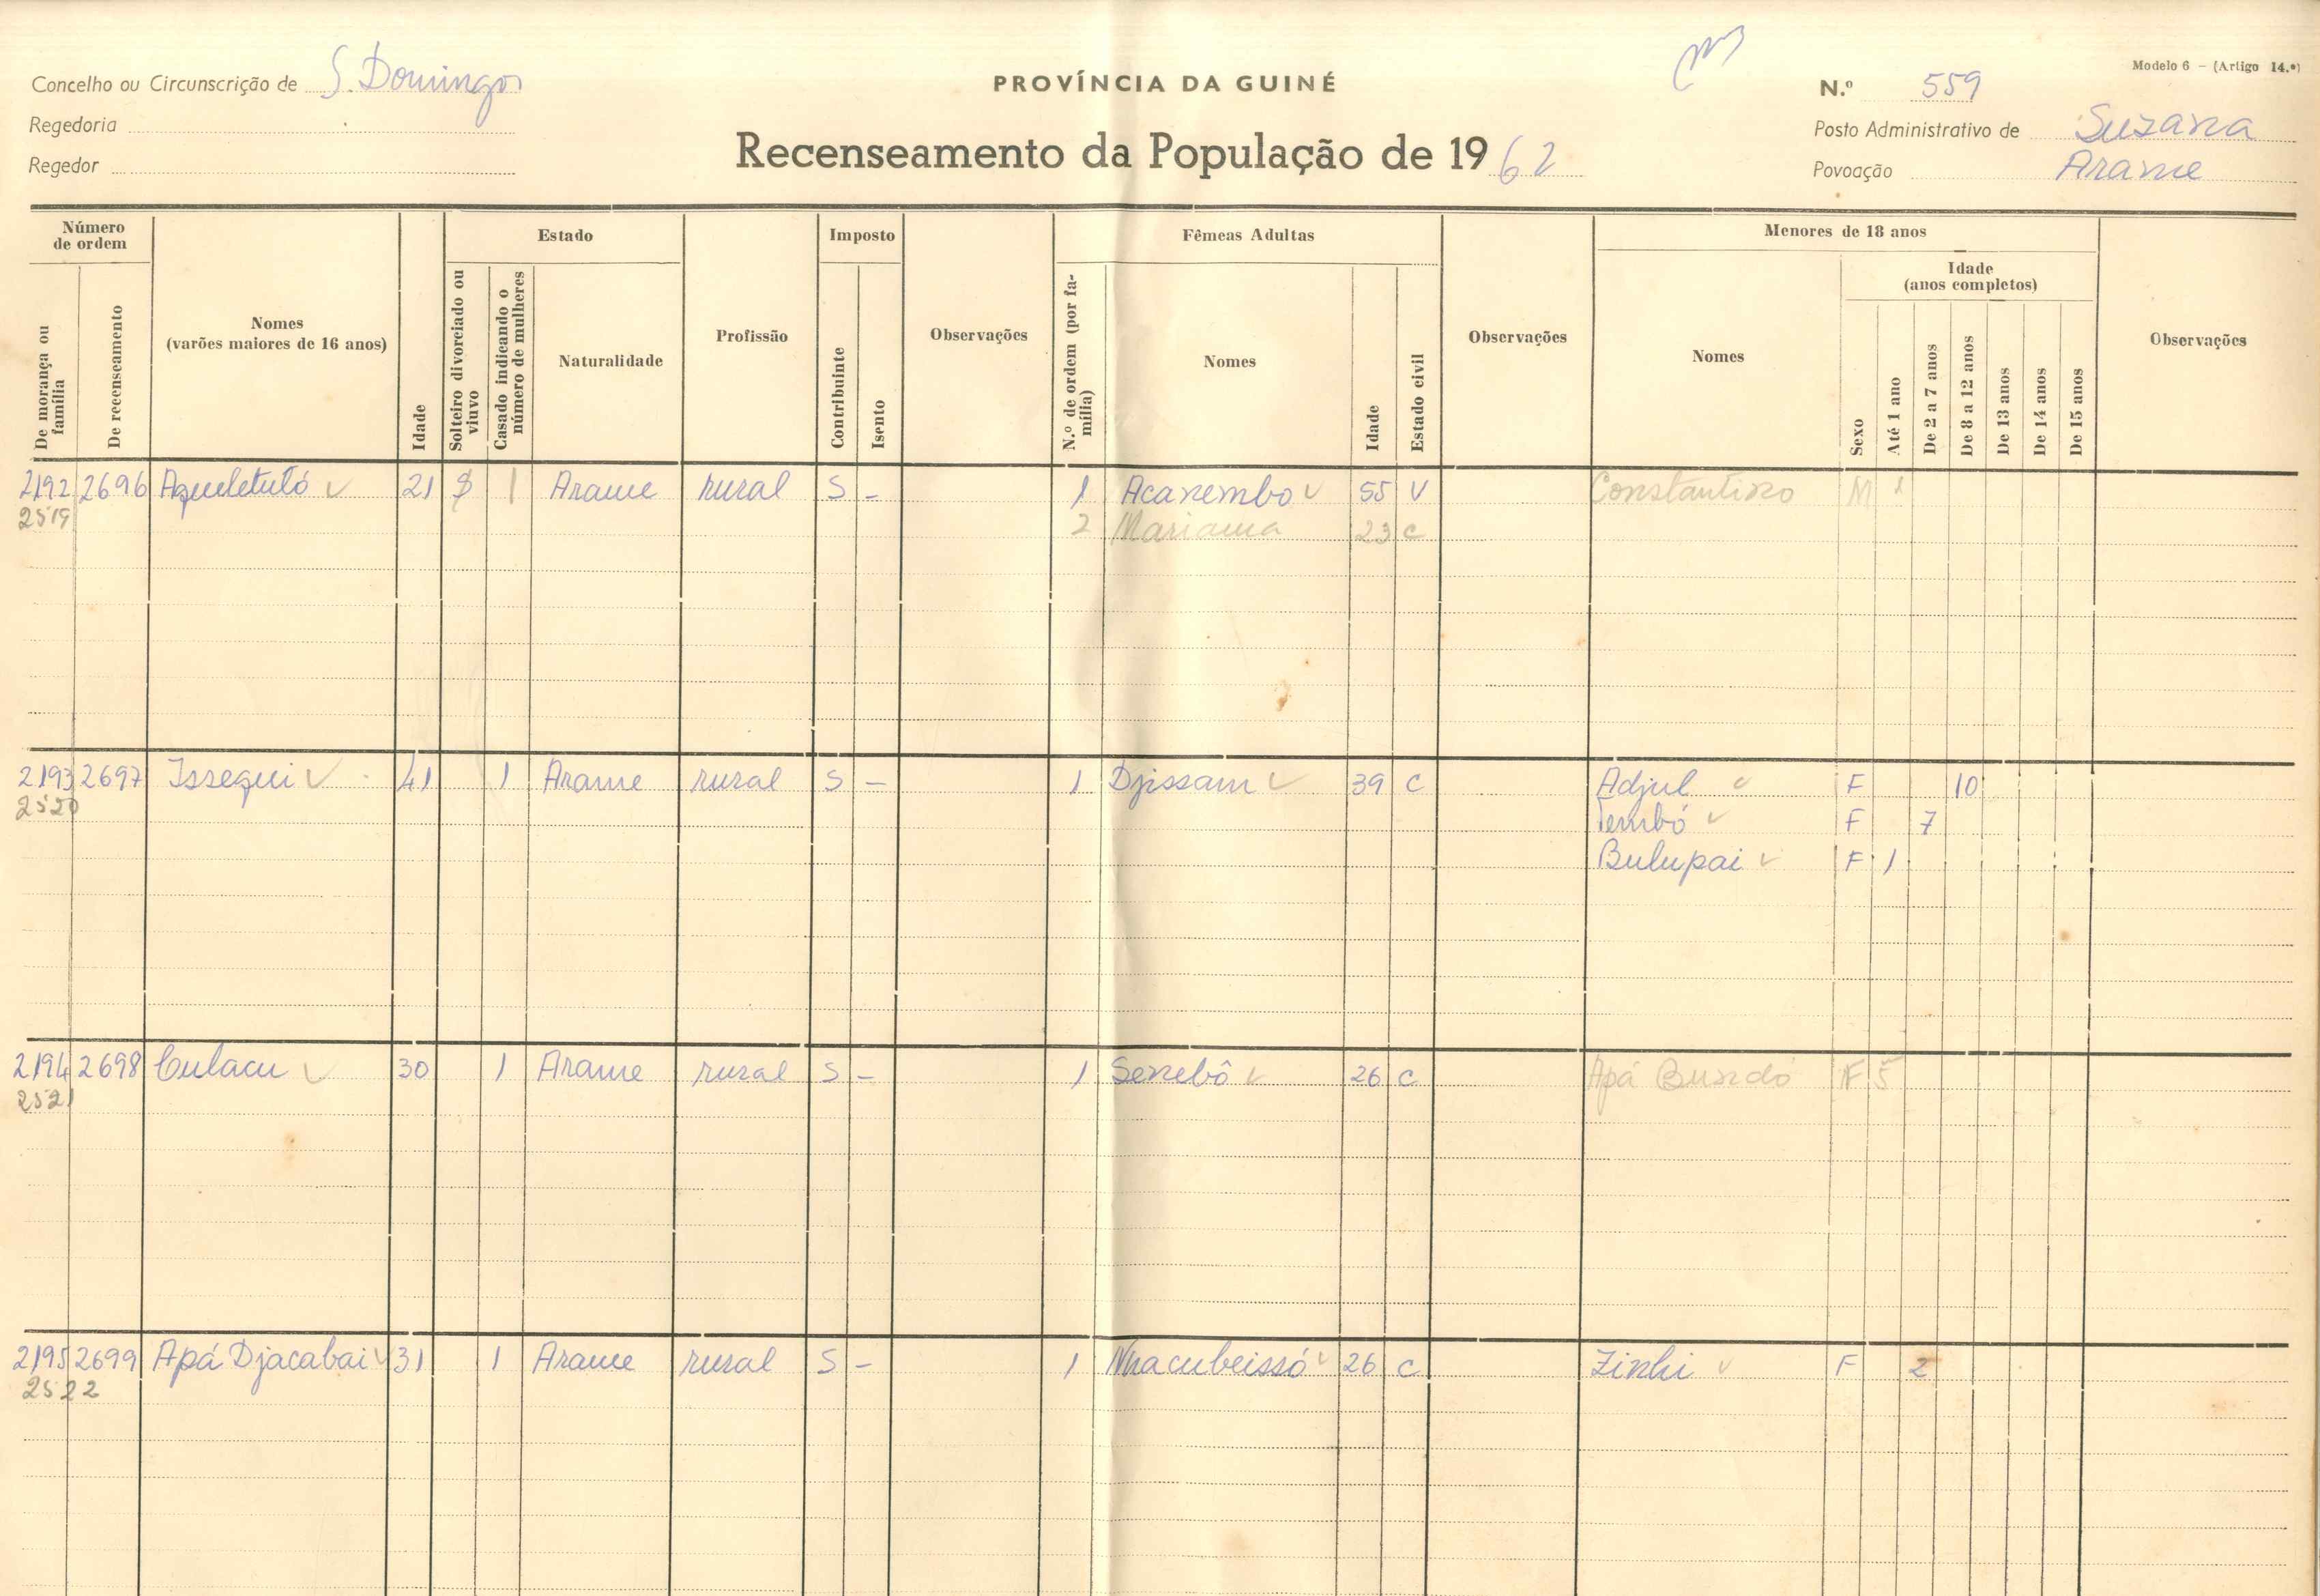 Modelo 6 - (Artigo 14.º)
Concelho ou Circunscrição de S. Domingos
PROVÍNCIA DA GUINÉ
N.º 559
Regedoria
Recenseamento da População de 1962
Posto Administrativo de Suzana
Regedor
Povoação Arame
Número de ordem
De morança ou família
De recenseamento
Nomes
(varões maiores de 16 anos)
Idade
Estado
Solteiro divorciado ou viuvo
Casado indicando o número de mulheres
Naturalidade
Profissão
Imposto
Contribuinte
Isento
Observações
Fêmeas Adultas
N.º de ordem (por família)
Nomes
Idade
Estado civil
Observações
Menores de 18 anos
Nomes
Sexo
Idade
(anos completos)
Até 1 ano
De 2 a 7 anos
De 8 a 12 anos
De 13 anos
De 14 anos
De 15 anos
Observações
2192 2696 Aqueletuló 21 S 1 Arame rural S - 1 Acanembo 55 V Constantino M 1
2519 2 Mariama 23 C
2193 2697 Issequi 41 1 Arame rural S - 1 Djissam 39 C Adjul F 10
2520 Tembó F 7
Bulupai F 1
2194 2698 Culacu 30 1 Arame rural S - 1 Senebô 26 C Apá Bundó F 5
2521
2195 2699 Apá Djacabai 31 1 Arame rural S - 1 Nhacubeissó 26 C Zinhi F 2
2522